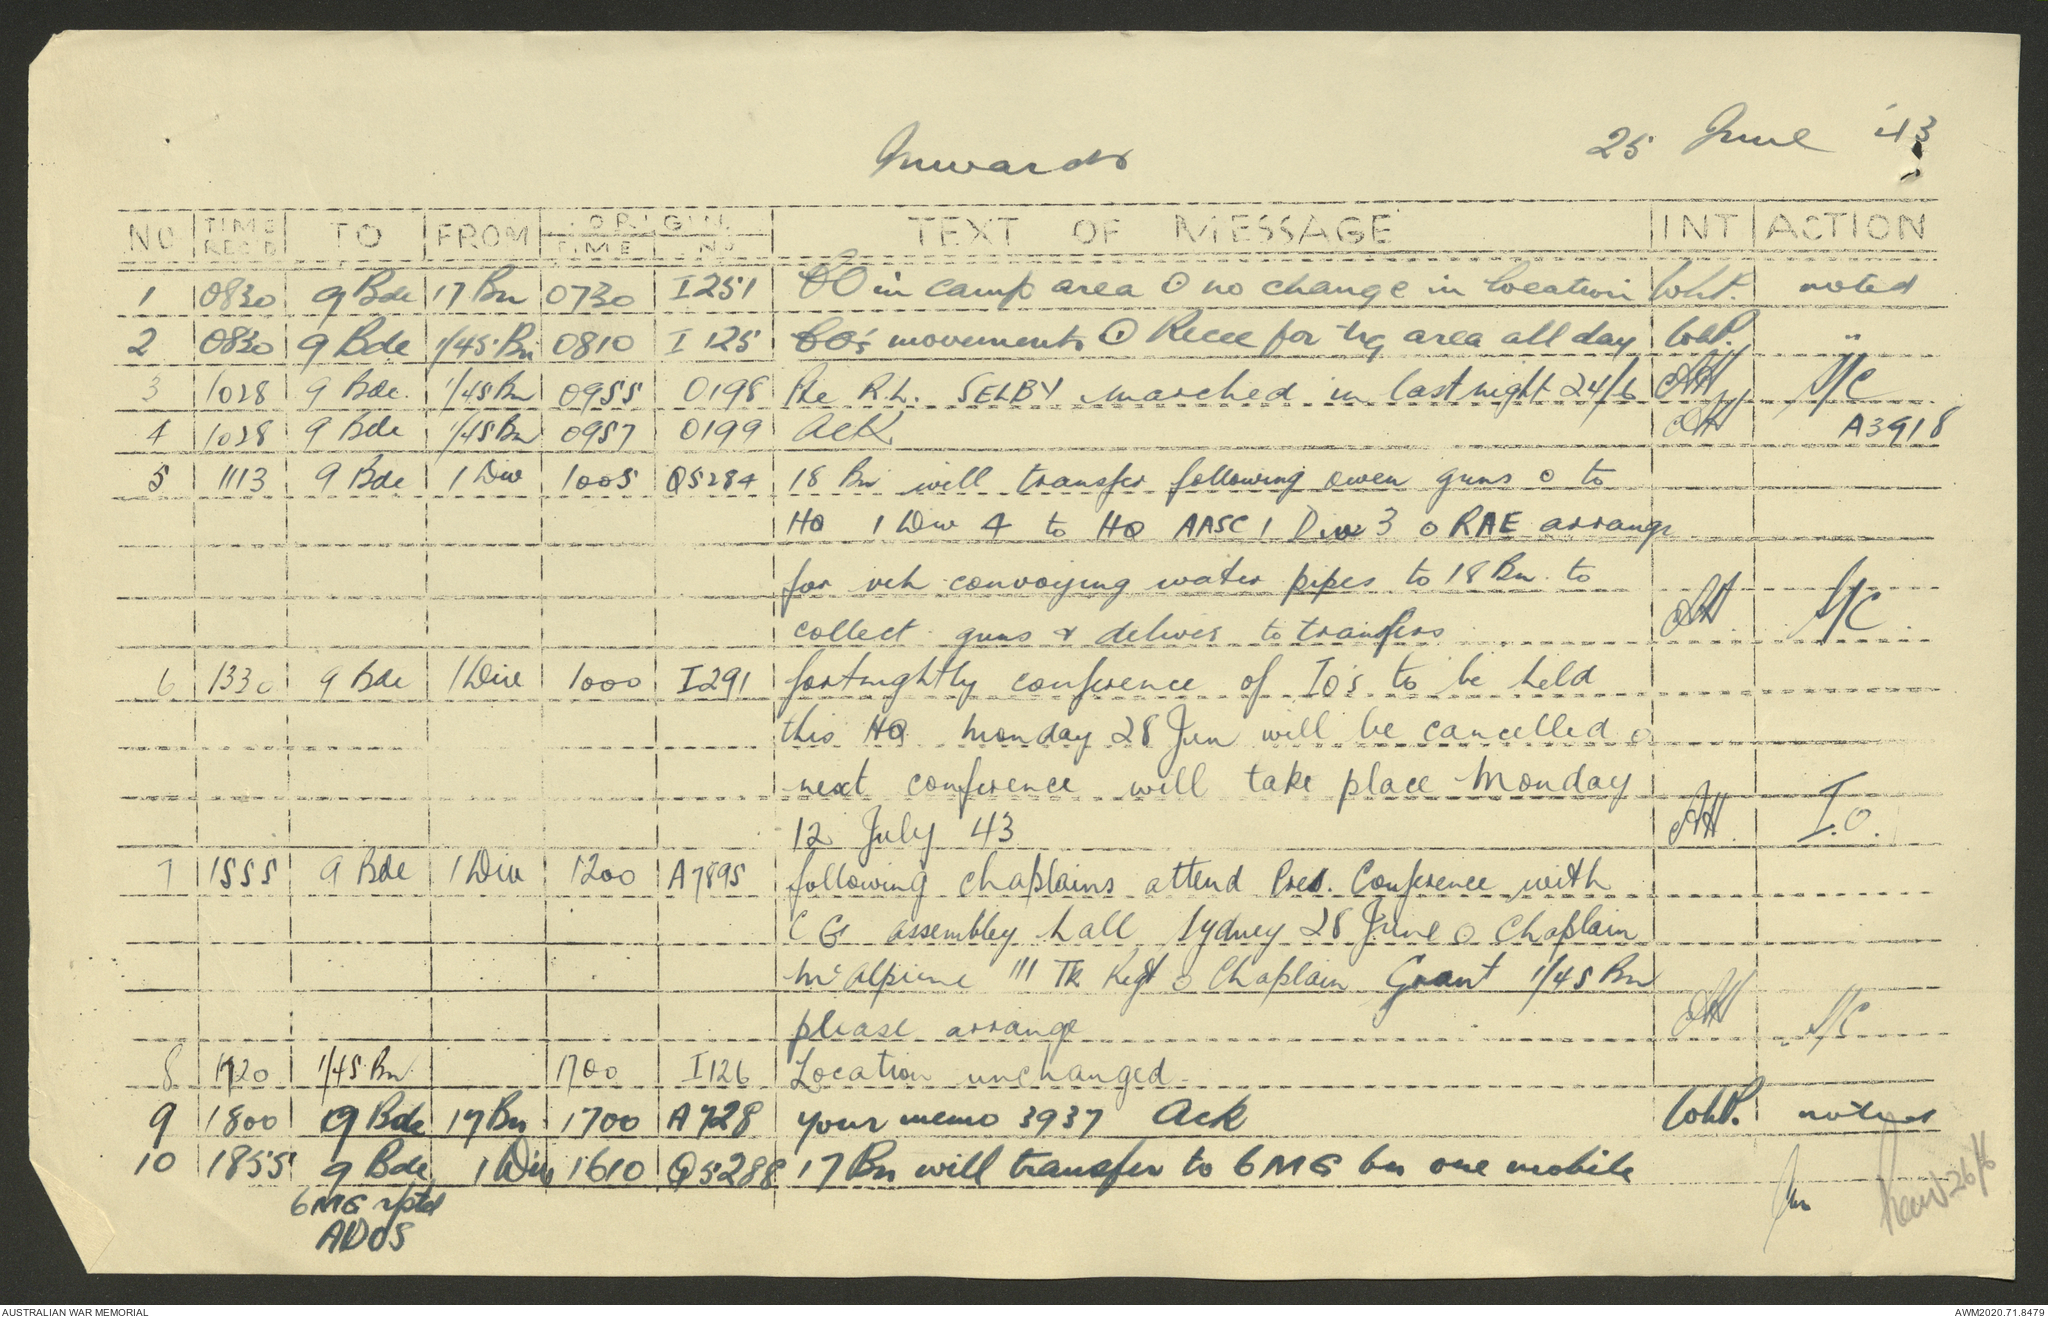 Inwards
25 June '43
NO | TIME REC'D | TO | FROM | ORIGIN TIME | NO | TEXT OF MESSAGE | INT | ACTION
1 | 0830 | 9 Bde | 17 Bn | 0730 | I251 | CO in camp area O no change in location | WHP. | noted
2 | 0830 | 9 Bde | 1/45 Bn | 0810 | I 125 | CO's movements O Recce for trg area all day | WHP. | "
3 | 1028 | 9 Bde. | 1/45 Bn | 0955 | O198 | Pte R.L. SELBY marched in last night 24/6 | | S/C
4 | 1028 | 9 Bde | 1/45 Bn | 0957 | O199 | Ack | | A3918
5 | 1113 | 9 Bde | 1 Div | 1005 | Q5284 | 18 Bn will transfer following owen guns o to
HQ 1 Div 4 to HQ AASC 1 Div 3 o RAE arrange
for veh convoying water pipes to 18 Bn to
collect guns & deliver to transfers | | S/C
6 | 1330 | 9 Bde | 1 Div | 1000 | I291 | fortnightly conference of IO's to be held
this HQ monday 28 Jun will be cancelled o
next conference will take place Monday
12 July 43 | | I.O.
7 | 1555 | 9 Bde | 1 Div | 1200 | A7895 | following chaplains attend Pres. Conference with
C G assembley hall Sydney 28 June o Chaplain
McAlpine 111 Tk Regt o Chaplain Grant 1/45 Bn
please arrange | | S/C
8 | 1720 | 1/45 Bn | 1700 | I126 | Location unchanged
9 | 1800 | 9 Bde | 17 Bn | 1700 | A728 | your memo 3937 Ack | WHP. | noted
10 | 1855 | 9 Bde | 1 Div | 1610 | Q5288 | 17 Bn will transfer to 6 MG bn one mobile
6 MG rptd
ADOS
26/6
AUSTRALIAN WAR MEMORIAL
AWM2020.71.8479